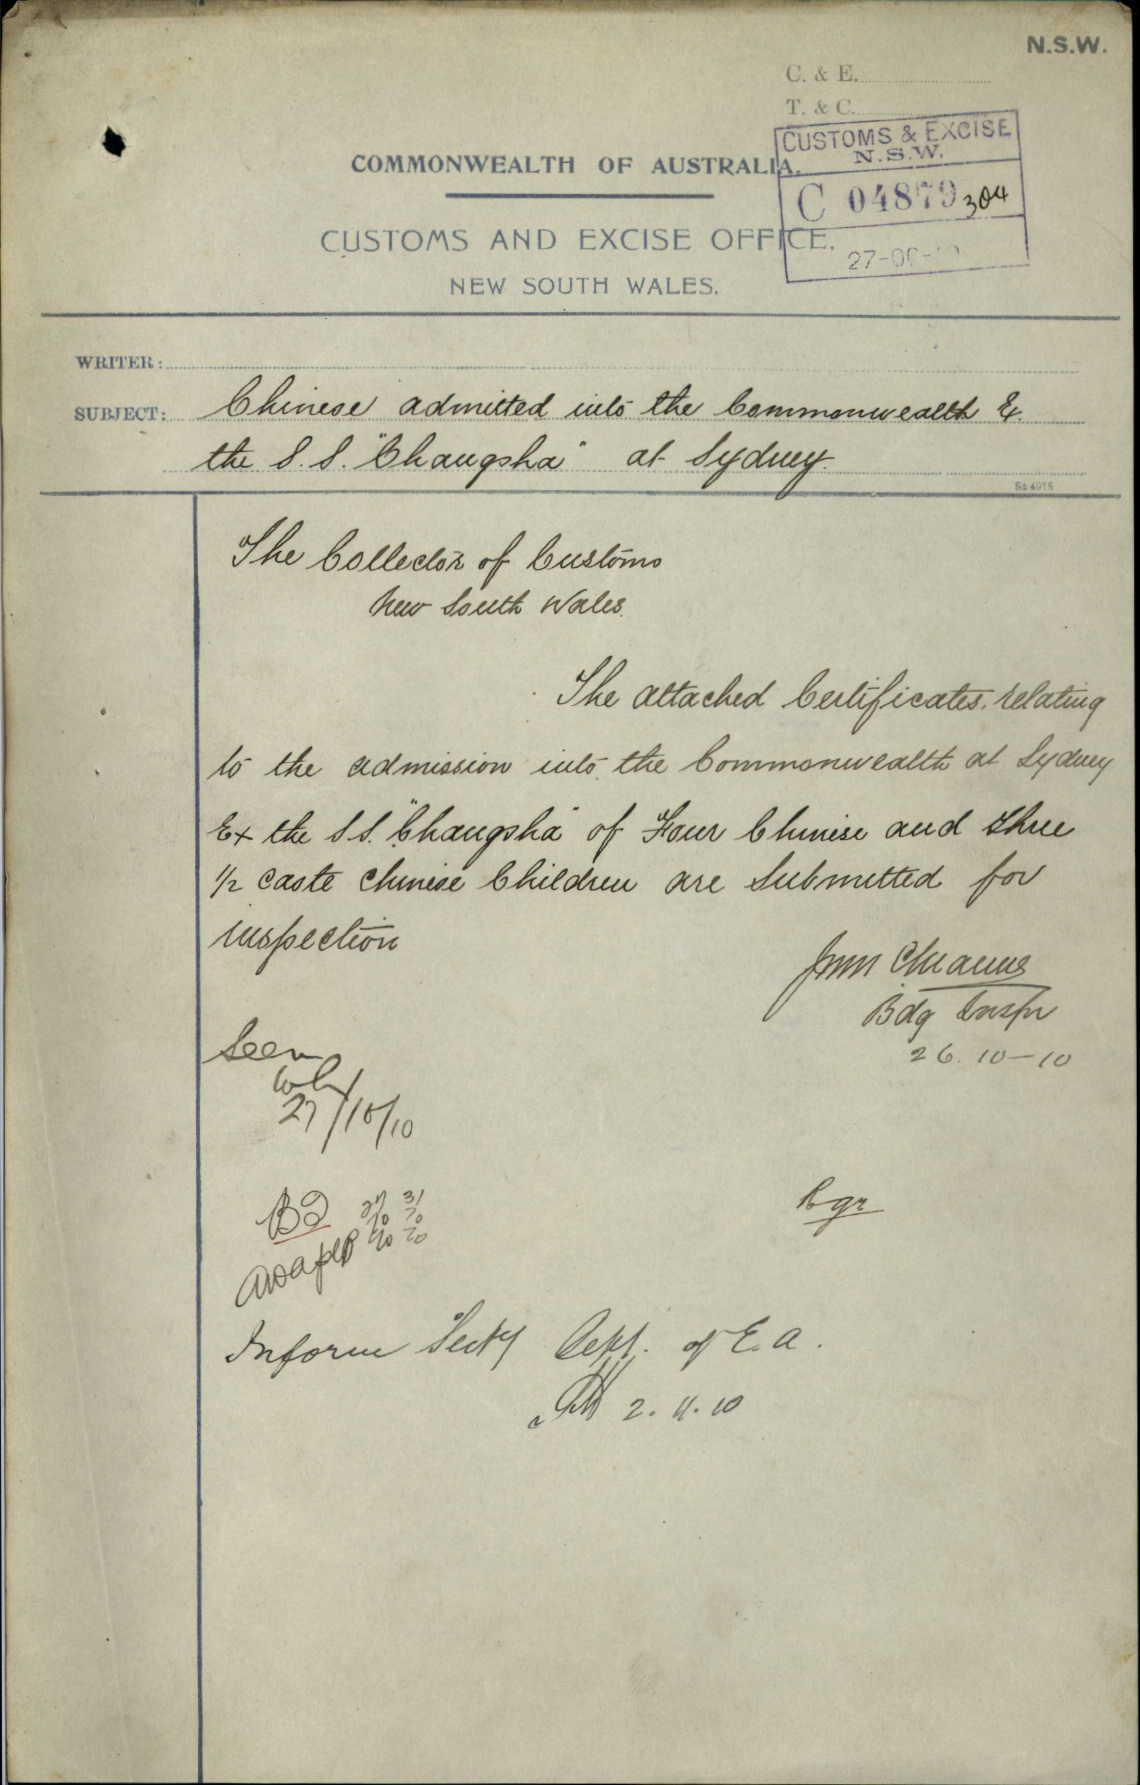 N.S.W.
C. & E.
T. & C.
CUSTOMS & EXCISE
N.S.W.
C 04879 304
27-
COMMONWEALTH OF AUSTRALIA.
CUSTOMS AND EXCISE OFFICE.
NEW SOUTH WALES.
WRITER:
SUBJECT: Chinese admitted into the Commonwealth Ex
the S.S. "Changsha" at Sydney.
The Collector of Customs
New South Wales.
The attached Certificates relating
to the admission into the Commonwealth at Sydney
Ex the S.S. "Changsha" of Four Chinese and three
1/2 caste Chinese Children are submitted for
inspection
Bdg Inspr
26.10-10
Seen
27/10/10
Inform Secty Dept. of E.A.
2.11.10